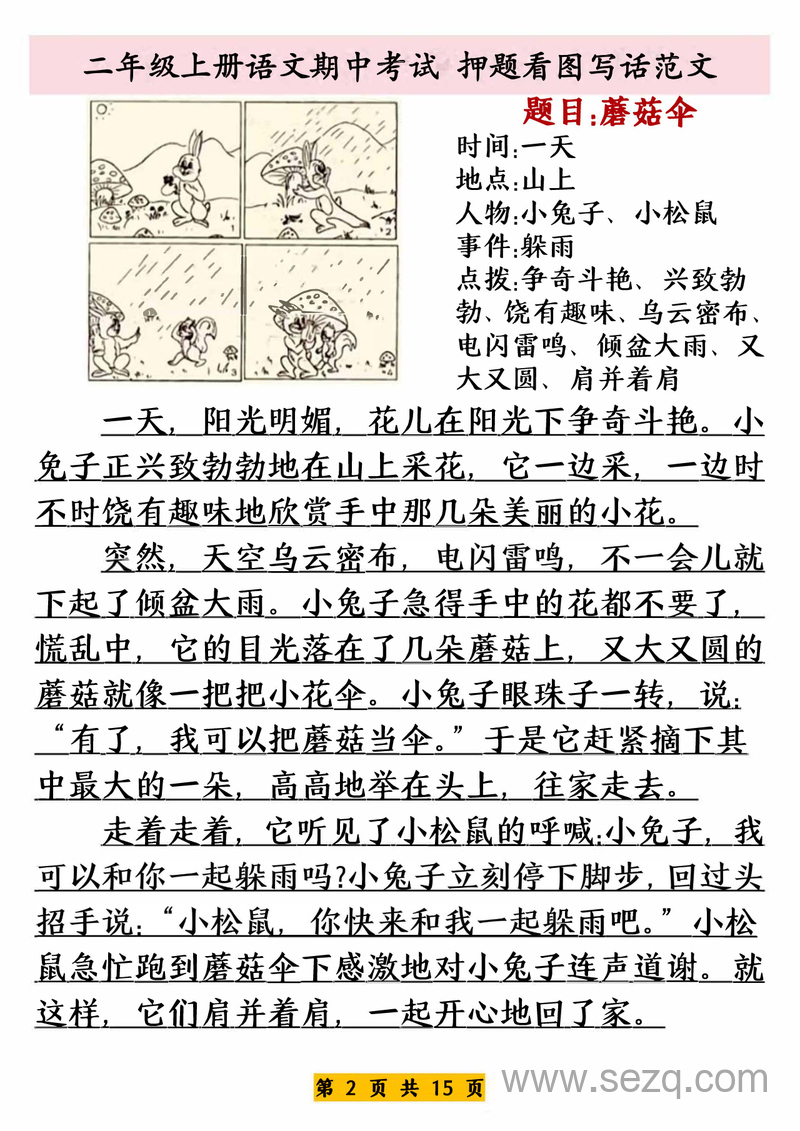 二年级上册语文期中考试 押题看图写话范文
题目:蘑菇伞
时间:一天
地点:山上
人物:小兔子、小松鼠
事件:躲雨
点拨:争奇斗艳、兴致勃
勃、饶有趣味、乌云密布、
电闪雷鸣、倾盆大雨、又
大又圆、肩并着肩
1
2
3
4
一天，阳光明媚，花儿在阳光下争奇斗艳。小
兔子正兴致勃勃地在山上采花，它一边采，一边时
不时饶有趣味地欣赏手中那几朵美丽的小花。
突然，天空乌云密布，电闪雷鸣，不一会儿就
下起了倾盆大雨。小兔子急得手中的花都不要了，
慌乱中，它的目光落在了几朵蘑菇上，又大又圆的
蘑菇就像一把把小花伞。小兔子眼珠子一转，说：
“有了，我可以把蘑菇当伞。”于是它赶紧摘下其
中最大的一朵，高高地举在头上，往家走去。
走着走着，它听见了小松鼠的呼喊:小兔子，我
可以和你一起躲雨吗?小兔子立刻停下脚步,回过头
招手说：“小松鼠，你快来和我一起躲雨吧。”小松
鼠急忙跑到蘑菇伞下感激地对小兔子连声道谢。就
这样，它们肩并着肩，一起开心地回了家。
第 2 页 共 15 页
www.sezq.com